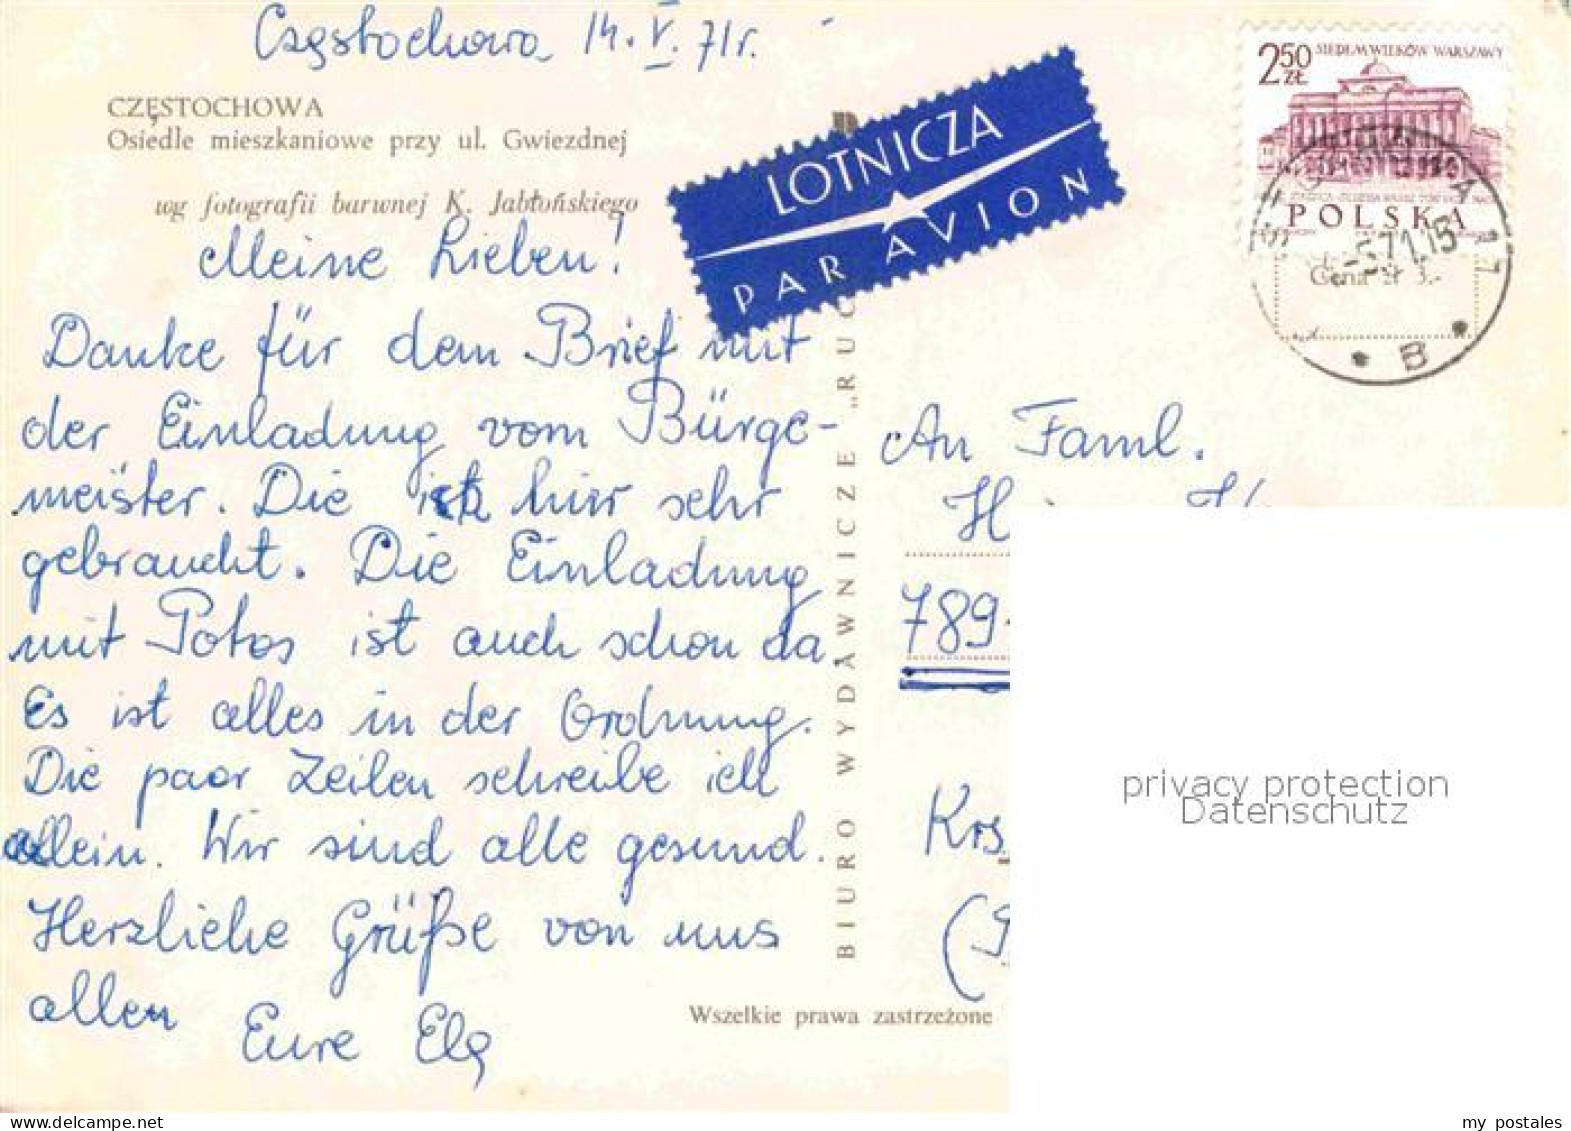 Częstochowa, 14.V.71r.
CZĘSTOCHOWA
Osiedle mieszkaniowe przy ul. Gwiezdnej
wg fotografii barwnej K. Jabłońskiego
Meine Lieben!
Danke für dem Brief mit
der Einladung vom Bürge-
meister. Die ist hier sehr
gebraucht. Die Einladung
mit Potos ist auch schon da
Es ist alles in der Ordnung.
Die paar Zeilen schreibe ich
allein. Wir sind alle gesund.
Herzliche Grüße von uns
allen
Eure Ela
LOTNICZA
PAR AVION
BIURO WYDAWNICZE „RUC
2,50 ZŁ
SIEDEM WIEKÓW WARSZAWY
POLSKA
-5.71.15
Cena zł 3.-
B
An Faml.
789
Wszelkie prawa zastrzeżone
privacy protection
Datenschutz
my postales